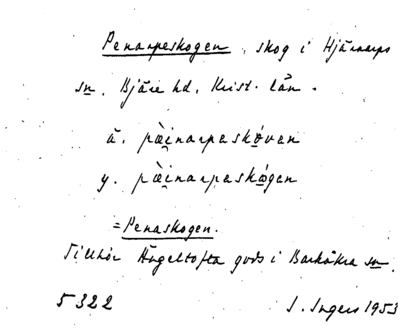 Penarpeskogen, skog i Hjärnarps
sn, Bjäre hd, Krist. län.
ä. pæ̀i̯narpeskóven
y. pæ̀i̯narpeskógen
= Penaskogen.
Tillhör Ängeltofta gods i Barkåkra sn.
5322 S. Ingers 1953